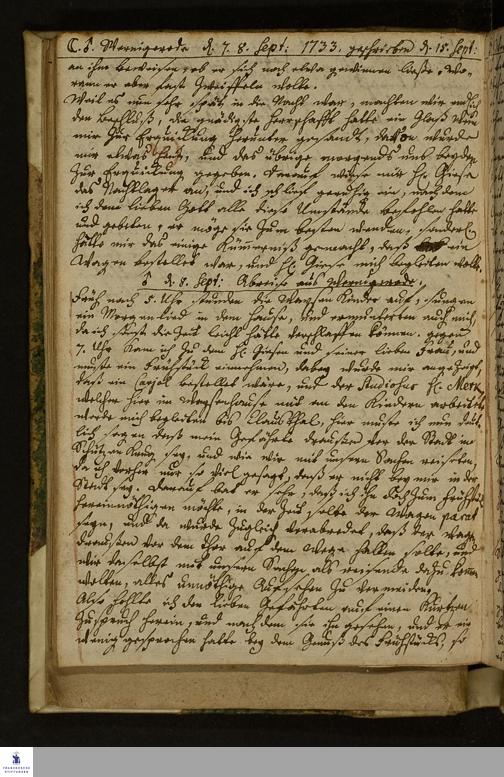 C. ♄. Wernigerode d. 7. 8. Sept: 1733. geschrieben d. 15. Sept:
an ihm beweisen, ob er sich noch etwa gewinnen ließe, wo-
ran er aber fast zweiffeln wolte.
Weil es nun sehr spät in die Nacht war, machten wir endlich
den Beschluß, die gnädigste Herrschafft hatte ein Glaß Wein
mir zur Erquickung herunter gesandt, davon wurde
mir etwas, und das übrige morgends uns beyden
zur Erquickung gegeben. Darauf wiese mir H. Giese
das Nachtlager an, und ich schlief geruhig ein, nachdem
ich dem lieben Gott alle diese Umstände befohlen hatte
und gebeten, er möge sie zum besten wenden, sonderl.
hatte mir das einige Kümmerniß gemacht, daß ein
Wagen bestellet war, und H. Giese mich begleiten wolte.
♂ d. 8. Sept: Abreise aus Wernigerode.
Früh nach 5. Uhr stunden die Waysen Kinder auf, sungen
ein Morgenlied in dem Hause, und ermunterten auch mich,
da ich sonst die Zeit leicht hätte verschlaffen können. gegen
7. Uhr kam ich zu dem H. Giesen und seiner lieben Frau, und
muste ein Frühstück einnehmen, dabey wurde mir angezeigt,
daß ein bestellet wäre, und der Studiosus H. Merk
welcher hier im Waysenhause mit an den Kindern arbeitet
werde mich begleiten bis Clausthal, hier muste ich nun deut-
lich sagen daß mein Gefährte draussen vor der Stadt im
Schützen Krug sey, und wie wir mit unsern Sachen reiseten,
da ich vorher nur so viel gesagt, daß er nicht bey mir in der
Stadt sey. Darauf bat er sehr, daß ich ihn doch zum Frühstück
hereinnöthigen möchte, in der Zeit solte der Wagen parat
seyn, und da wurde zugleich verabredet, daß der Wagen
draussen vor dem Thor auf dem Wege halten solte, und
wir daselbst mit unsern Sachen als reisende dazu kommen
wolten, alles unnöthige Aufsehen zu vermeiden.
Also hohlte ich den lieben Gefährten auf einen kurtzen
Zuspruch herein, und nachdem sie ihn gesehen, und er ein
wenig gesprochen hatte bey dem Genuß des Frühstücks, so
FRANCKESCHE
STIFTUNGEN